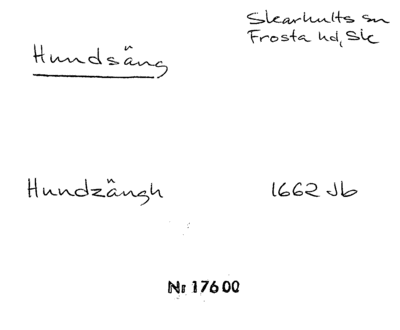 Skarhults sn
Frosta hd, Sk
Hundsäng
Hundzängh 1662 Jb
Nr 17600